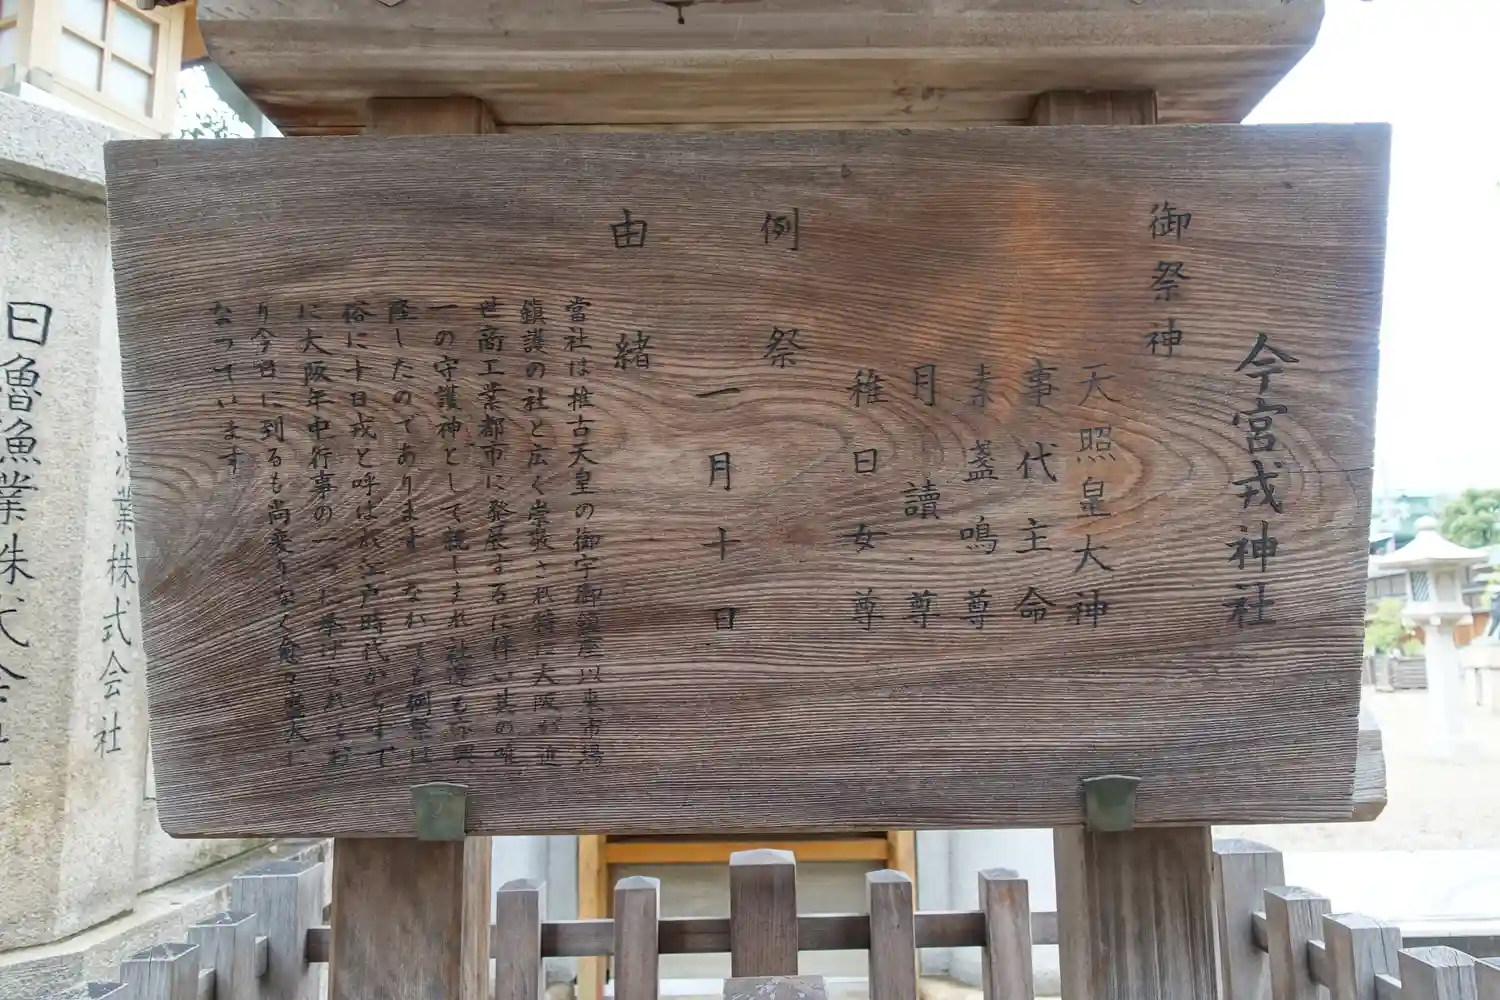 今宮戎神社
御祭神
天照皇大神
事代主命
素盞鳴尊
月讀尊
稚日女尊
例祭
一月十日
由緒
當社は推古天皇の御宇御鎮座以来市場
鎮護の社と広く崇敬され特に大阪が近
世商工業都市に発展するに伴い其の唯
一の守護神として親しまれ社運も亦興
隆したのであります なかでも例祭は
俗に十日戎と呼ばれ江戸時代からすで
に大阪年中行事の一つに挙げられてお
り今日に到るも尚変りなく愈々盛大に
なっています
漁業株式会社
日魯漁業株式会社